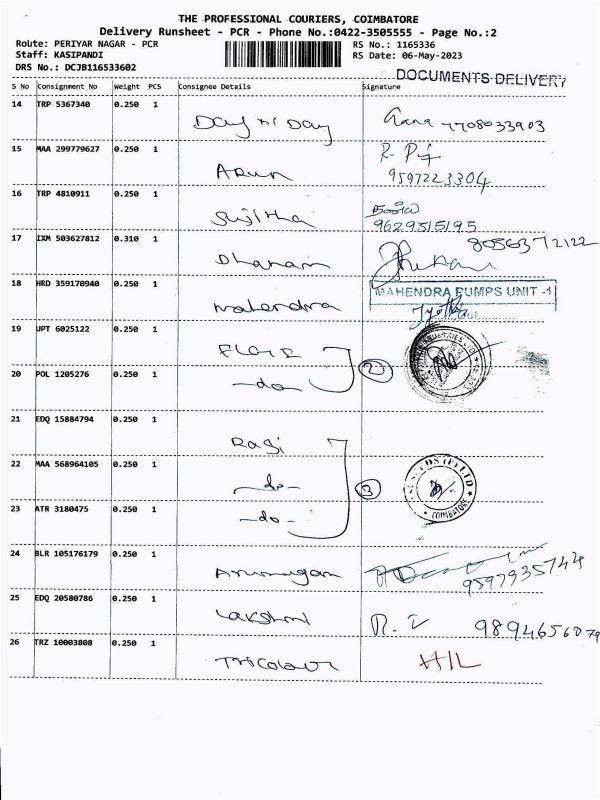 THE PROFESSIONAL COURIERS, COIMBATORE
Delivery Runsheet - PCR - Phone No.:0422-3505555 - Page No.:2
Route: PERIYAR NAGAR - PCR RS No.: 1165336
Staff: KASIPANDI RS Date: 06-May-2023
DRS No.: DCJB116533602
DOCUMENTS DELIVERY
S No Consignment No Weight PCS Consignee Details Signature
14 TRP 5367340 0.250 1 Day N Day 7708033903
15 MAA 299779627 0.250 1 Arun 9597223304
16 TRP 4810911 0.250 1 Sujitha 9629515195
17 IXM 503627812 0.310 1 Dharani 8056372122
18 HRD 359170940 0.250 1 Mahendra MAHENDRA PUMPS UNIT -1
19 UPT 6025122 0.250 1
20 POL 1205276 0.250 1 -do- 2
21 EDQ 15884794 0.250 1 Ragi
22 MAA 568964105 0.250 1 -do- 3 COIMBATORE
23 ATR 3180475 0.250 1 -do-
24 BLR 105176179 0.250 1 Arumugam 9597935744
25 EDQ 20580786 0.250 1 Lakshmi 9894656079
26 TRZ 10003808 0.250 1 Tricolour H/L